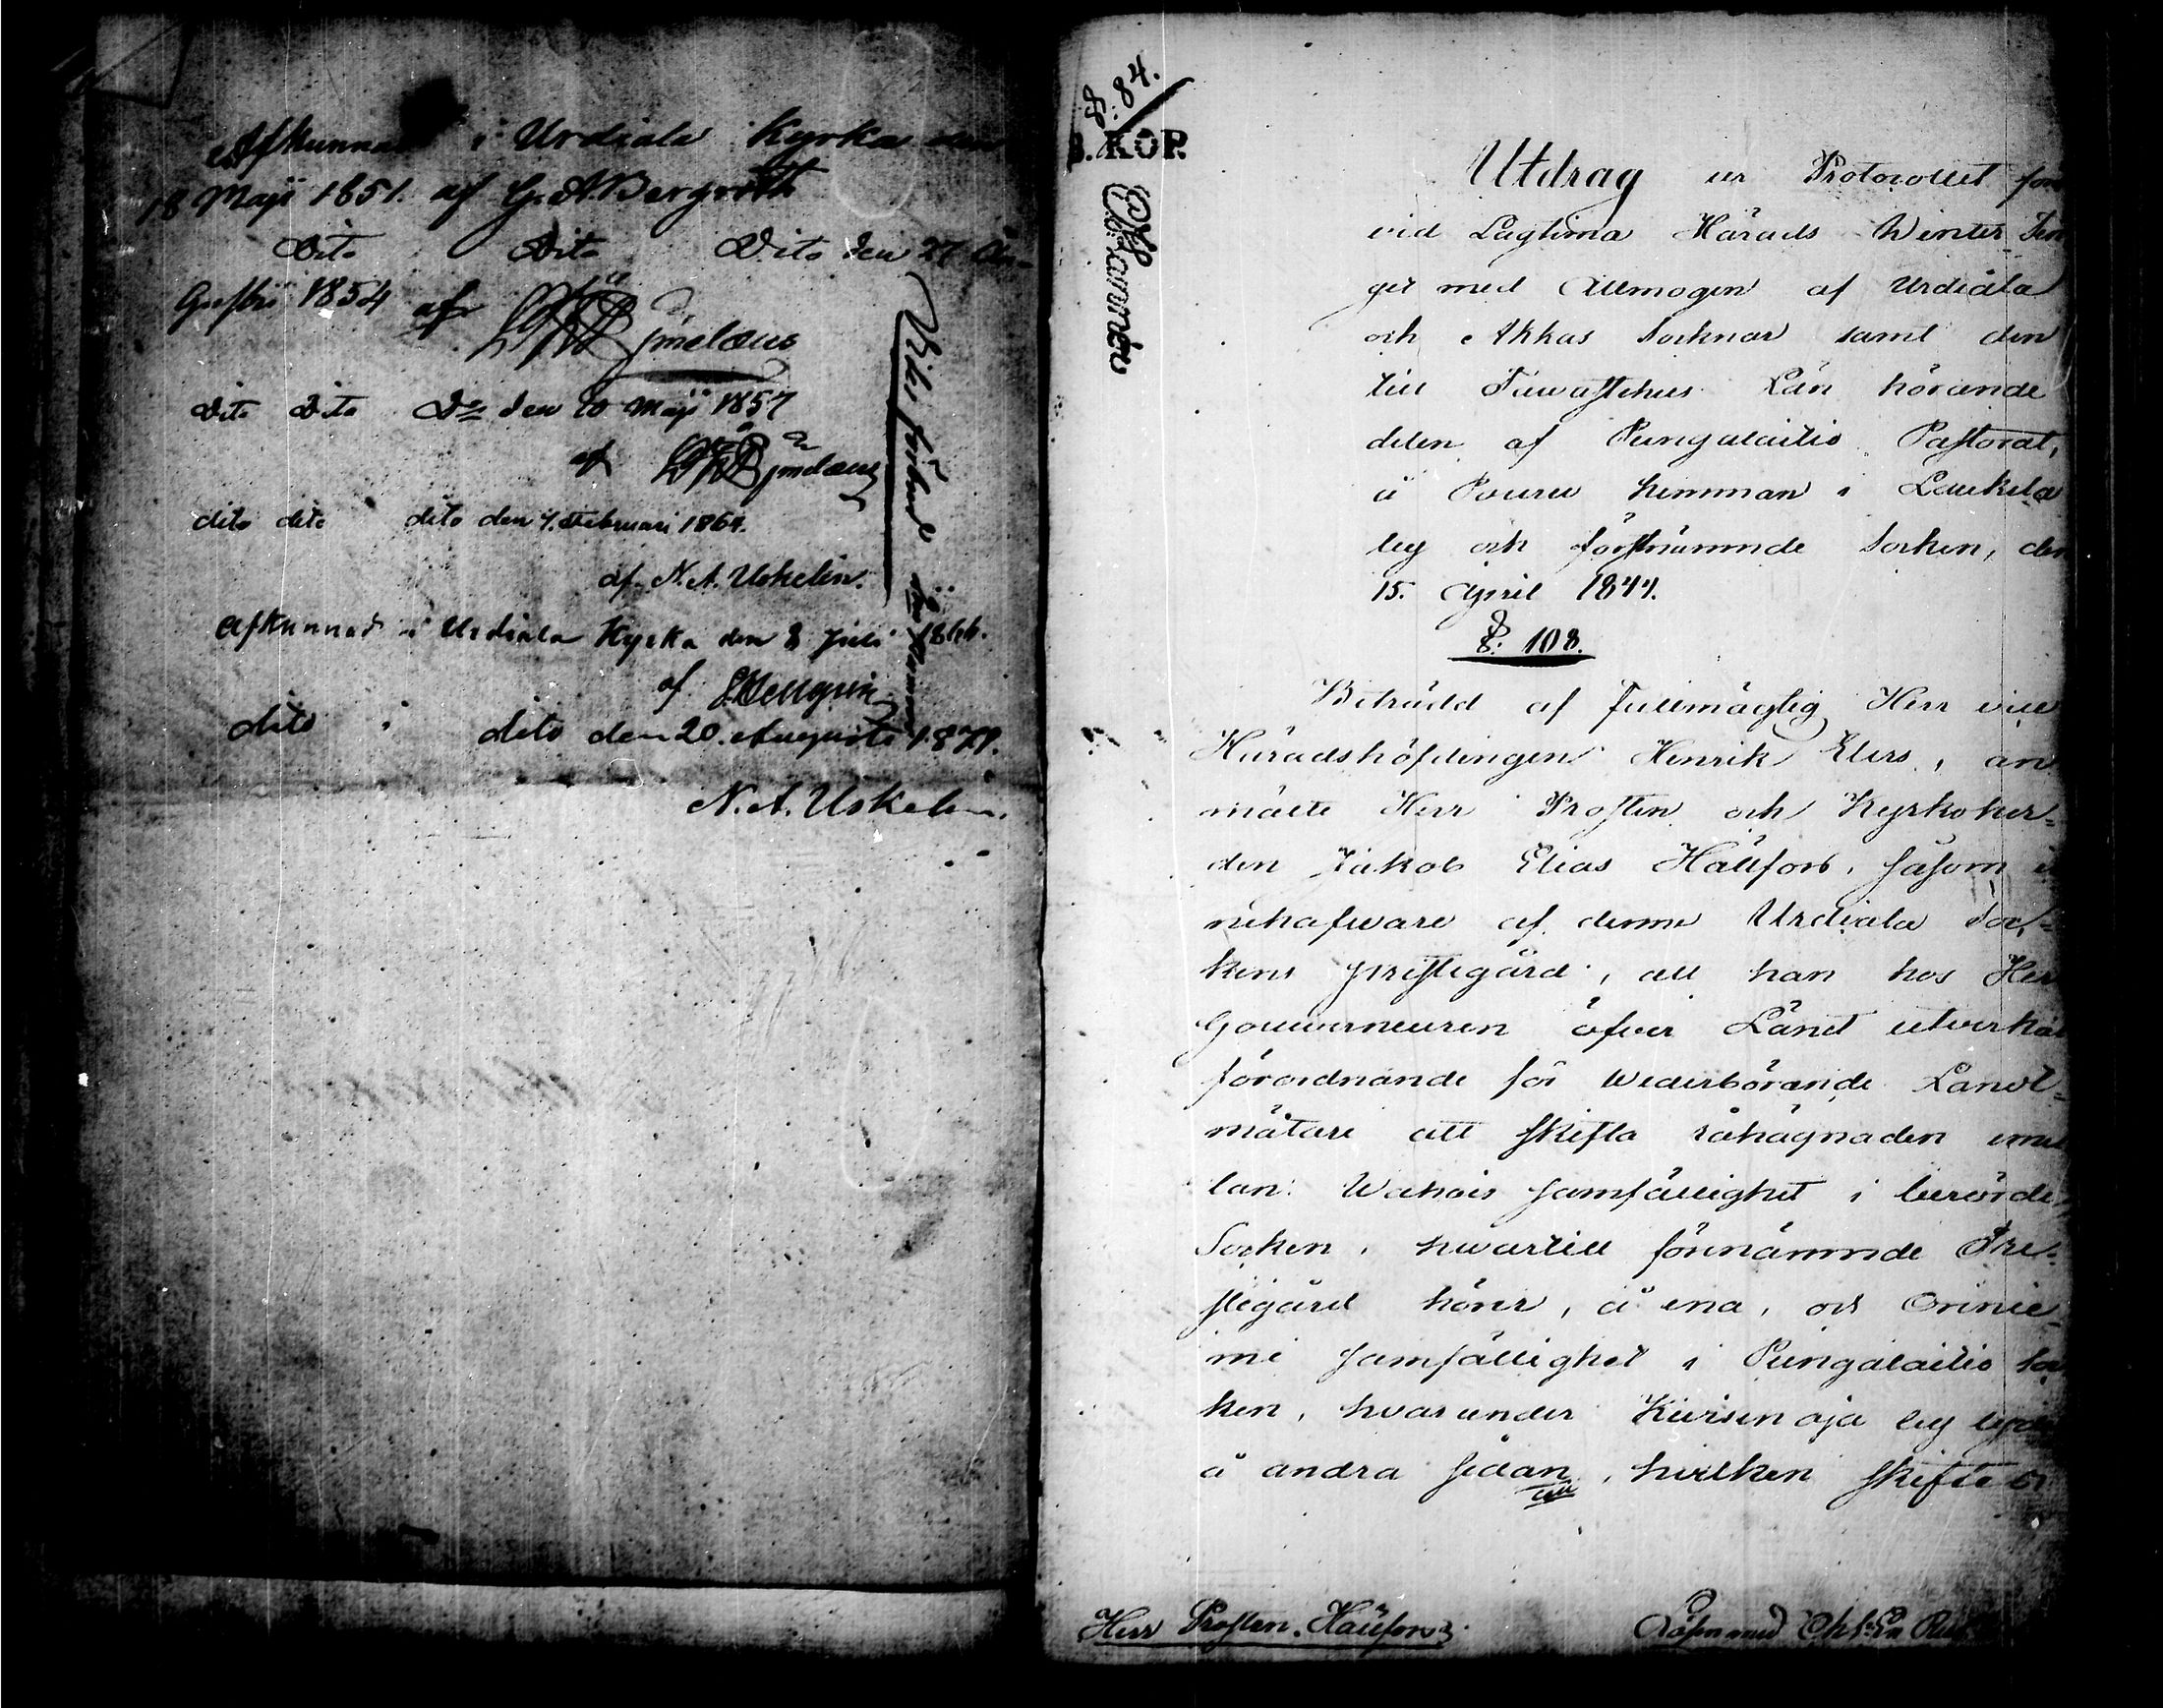 Afkunnad i Urdiala Kyrka den
18 Maji 1851. af G. A. Bergroth
Dito Dito Dito den 27 Au-
gusti 1854 af
Dito Dito Do den 10 Maji 1857
af
dito dito dito den 7. Februari 1864.
af N. A. Uskelin.
Afkunnad i Urdiala Kyrka den 8 Juli 1866.
af
dito i dito den 20. Augusti 1871.
N. A. Uskelin.
§. 84.
B. KOP.
Utdrag ur Protocollet för
vid Lagtima Härads Winter Tin
get med Allmogen af Urdiala
och Akkas Socknar samt den
till Tawastehus Län hörande
delen af Pungalaitio Pastorat,
å Pouru hemman i Laukela
by och förstnämnde Socken, den
15. April 1844.
§. 108.
Biträdd af Fullmägtig Herr vice
Häradshöfdingen Henrik Elers, an
mälte Herr Prosten och Kyrkoher-
den Jakob Elias Hällfors, såsom i
nehafware af denne Urdiala Soc-
kens prestegård, att han hos Her
Gouverneuren öfver Länet utverkat
förordnande för wederbörande Landt-
mätare att skifta råhägnaden emel
lan Wahois samfällighet i berörde
Socken, hwartill förenämnde Pre-
stegård hörer, å ena, och Orinie-
mi samfällighet i Pungalaitio Soc
ken, hvarunder Kuurisenoja by lyder
å andra sidan, hvilken skifte
Herr Prosten Hällfors